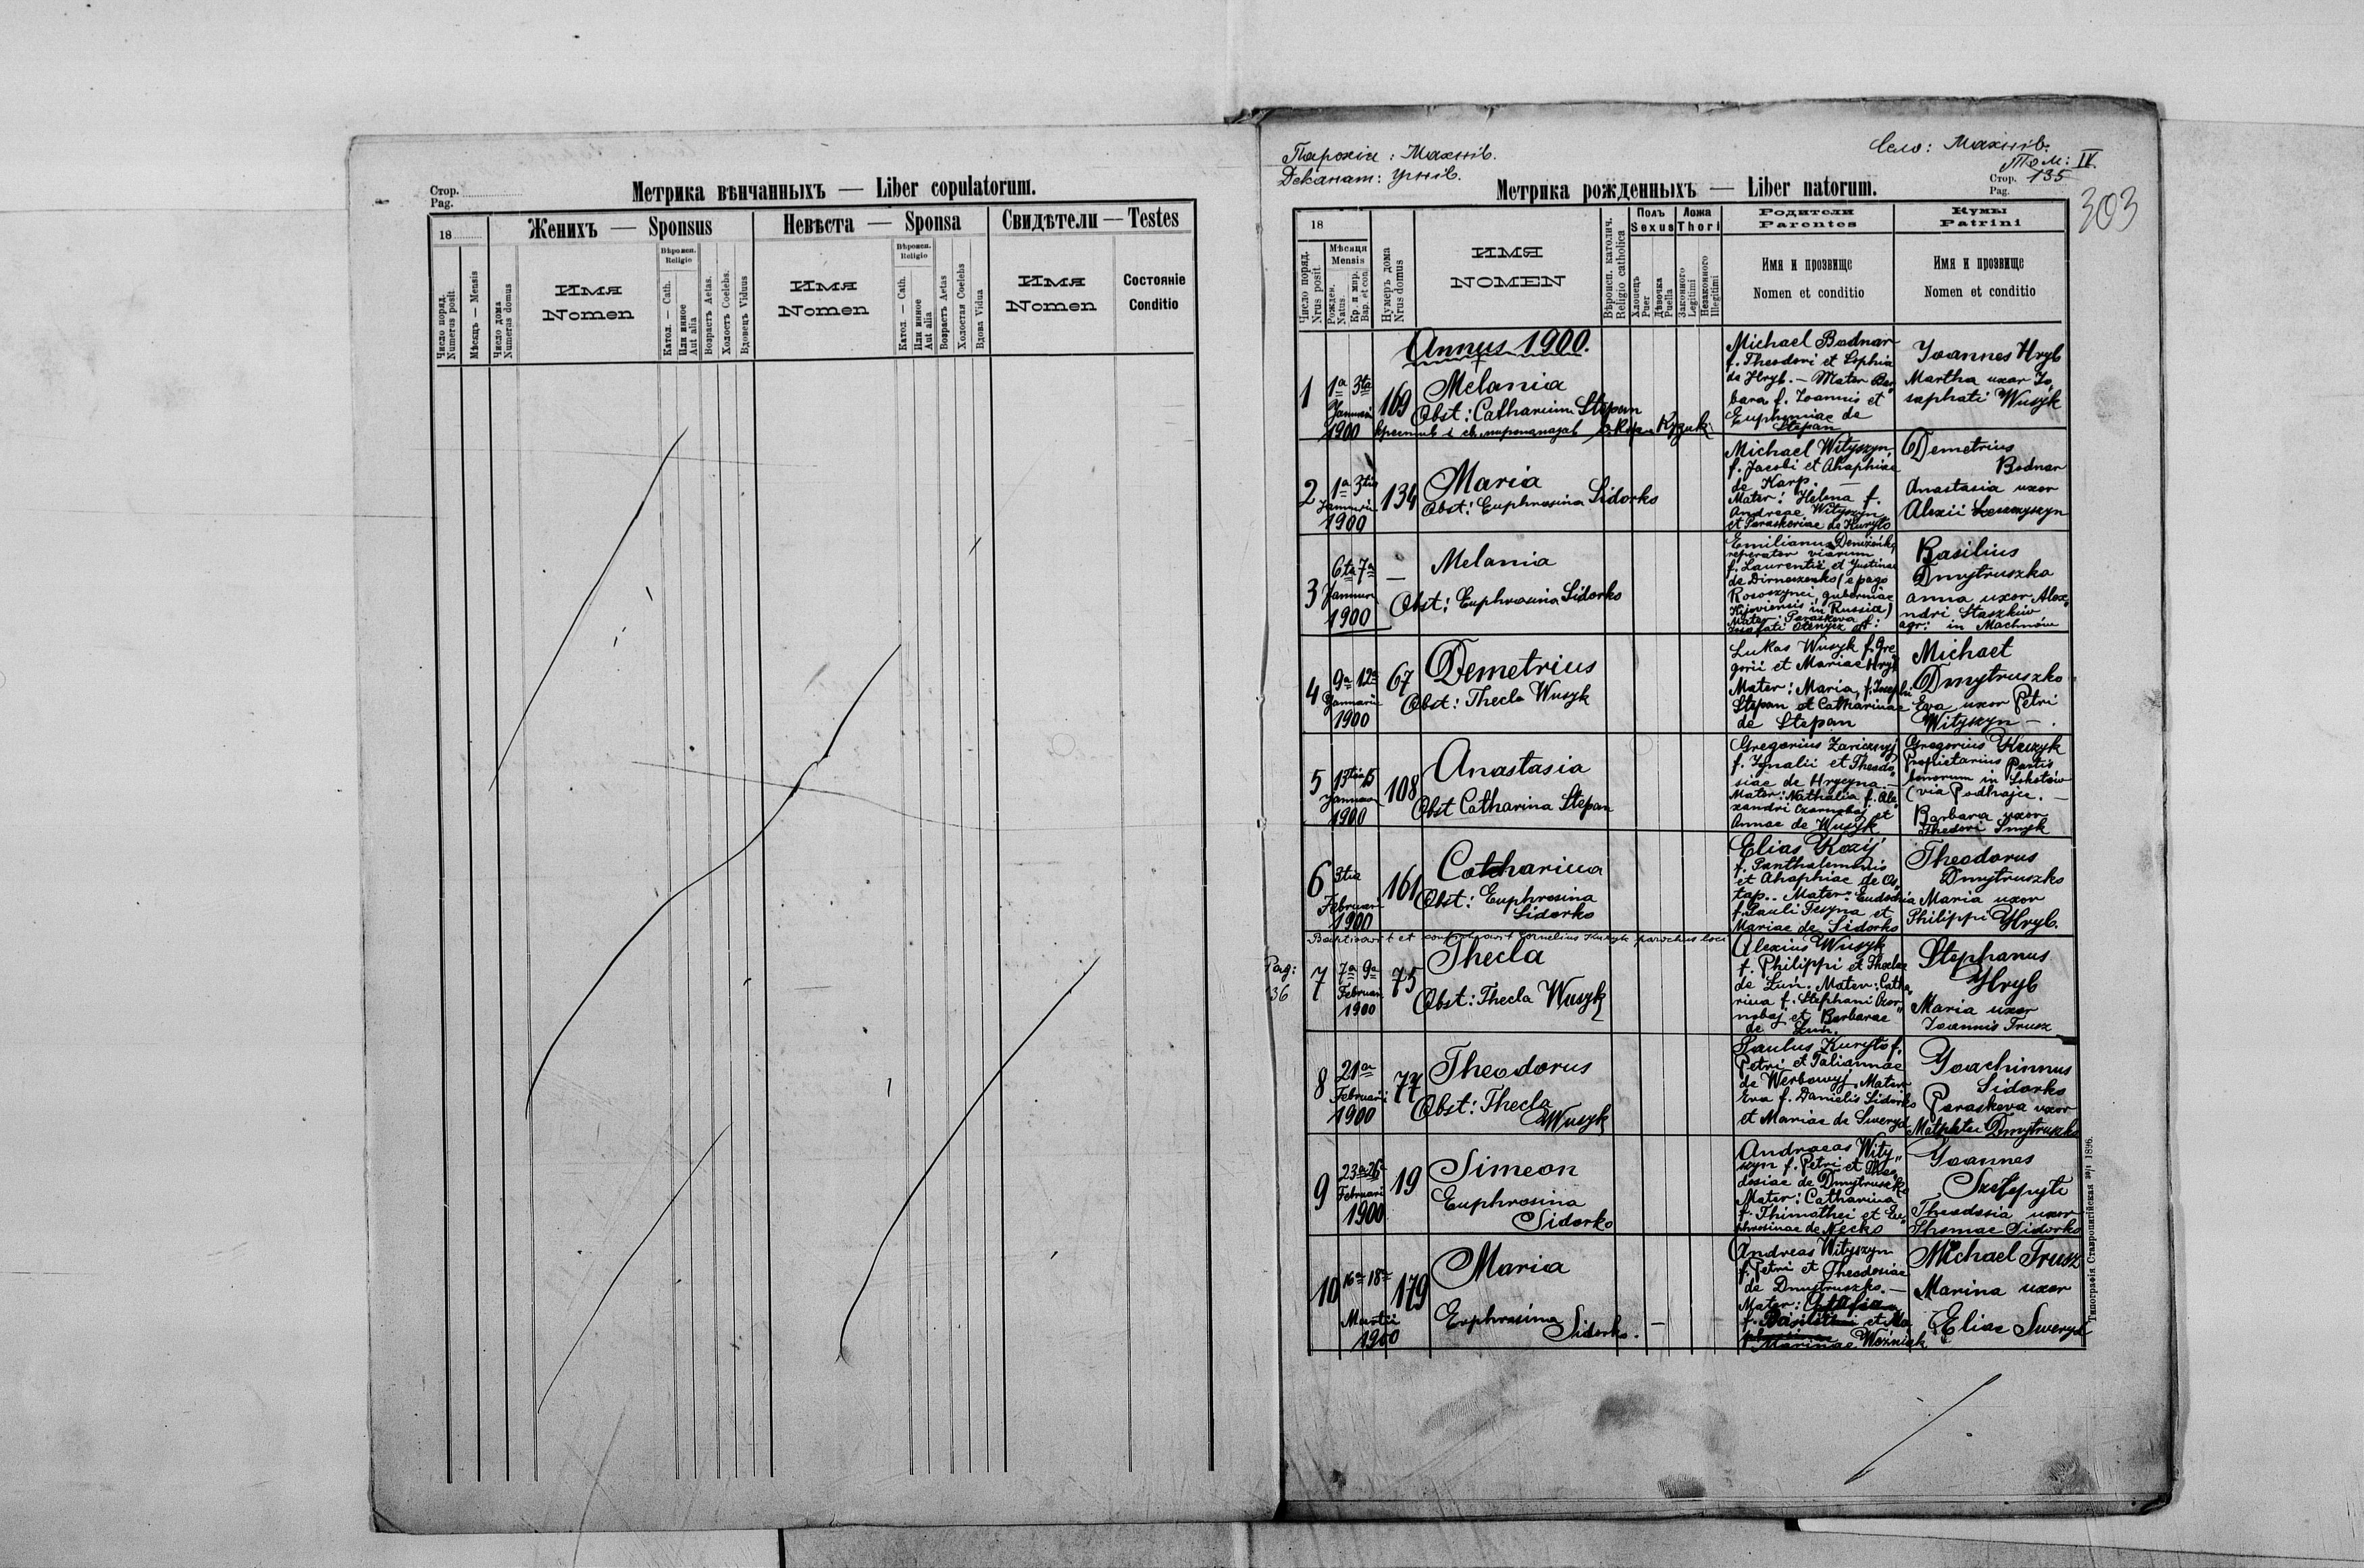 Стор.
Pag.
Метрика вѣнчанныхъ — Liber copulatorum.
18
Женихъ — Sponsus
Невѣста — Sponsa
Свидѣтели — Testes
Число поряд.
Numerus posit
Мѣсяцъ — Mensis
Число дома
Numerus domus
Имя
Nomen
Вѣроисп.
Religio
Катол. — Cath.
Или инное
Aut alia
Возрастъ Aetas.
Холостъ Coelebs.
Вдовецъ Viduus
Имя
Nomen
Вѣроисп.
Religio
Катол. — Cath.
Или инное
Aut alia
Возрастъ Aetas
Холостая Coelebs
Вдова Vidua
Имя
Nomen
Состояніе
Conditio
Парохія: Махнів.
Деканат: Угнів.
Село: Махнів.
Том: IV.
Стор. 135
Pag.
303
Метрика рожденныхъ — Liber natorum.
18
Число поряд.
Nrus posit
Мѣсяця
Mensis
Рожден.
Natus.
Кр. и мѵр.
Bap. et con
Нумеръ дома
Nrus domus
ИМЯ
NOMEN
Вѣроисп. католич.
Religio catholica
Полъ
Sexus
Хлопецъ
Puer
Дѣвочка
Puella
Ложа
Thori
Законного
Legitimi
Незаконного
Illegitimi
Родители
Parentes
Имя и прозвище
Nomen et conditio
Кумы
Patrini
Имя и прозвище
Nomen et conditio
Annus 1900.
1 1a 3tia
Januarii
1900
169
Melania
Obst: Catharina Stepan
Michael Bodnar
f. Theodori et Sophia
de Hryb. — Mater Bar"
bara f. Joannis et
Euphemiae de
Stepan
Joannes Hryb
Martha uxor Jo"
saphati Wusyk
2 1a 3tia
Januarii
1900
134
Maria
Obst: Euphrosina Sidorko
Michael Wityszyn,
f. Jacobi et Ahaphiae
de Karp. —
Mater: Helena f.
Andreae Wityszyn
et Paraskeviae de Kuryło
Demetrius
Bodnar
Anastasia uxor
Alexii
3 6ta 7a
Januarii
1900
—
Melania
Obst: Euphrosina Sidorko
Emilianus
reperator viarum
f. Laurentii et Justinae
de
Rososzynci, guberniae
Kijoviensis in Russia)
Mater: Paraskeva f:
Basilius
Dmytruszko
Anna uxor Alex"
ndri Staszków
agr: in Machnów
4 9a 12a
Januarii
1900
67
Demetrius
Obst: Thecla Wusyk
Lukas Wusyk f. Gre
gorii et Mariae Hryb
Mater: Maria, f. Josephi
Stepan et Catharinae
de Stepan
Michael
Dmytruszko
Eva uxor Petri
Wityszyn — .
5 13tia 15
Januarii
1900
108
Anastasia
Obst Catharina Stepan
Gregorius Zaricznyj
f. Ignatii et Theodo"
siae de Hrycyna. —
Mater: Nathalia f. Ale"
xandri Czornobaj et
Annae de Wusyk
Gregorius
Proprietarius Partis
bonorum in
(via Podhajce. —
Barbara uxor
Theodori Smyk
6 3tia
Februarii
1900
161
Catharina
Obst: Euphrosina
Sidorko
Elias Kozij
f. Panthalemonis
et Ahaphiae de Os"
tap.. Mater: Eudochia
f. Pauli Tesyna et
Mariae de Sidorko
Theodorus
Dmytruszko
Maria uxor
Philippi Hryb.
Baptisavit et confirmavit Cornelius Kuzyk parochus loci
Pag:
136
7 7a 9a
Februarii
1900
75
Thecla
Obst: Thecla Wusyk
Alexius Wusyk
f. Philippi et Theclae
de Lun. Mater: Catha"
rina f. Stephani Czor"
nobaj et Barbarae
de Lun.
Stephanus
Hryb
Maria uxor
Joannis Trusz
8 21a
Februarii
1900
77
Theodorus
Obst: Thecla
Wusyk
Paulus Kuryło f.
Petri et Taliannae
de Werbowyj. Mater
Eva f. Danielis Sidorko
et Mariae de Sweryd
Joachimus
Sidorko
Paraskeva uxor
Dmytruszko
9 23a 26a
Februarii
1900
19
Simeon
Euphrosina
Sidorko
Andreas Wity"
szyn f. Petri et Theo"
dosiae de Dmytruszko
Mater: Catharina
f. Thimothei et Eu"
phrosinae de Necko
Joannes
Szełepyło
Theodosia uxor
Thomae Sidorko
10 16a 18a
Martii
1900
179
Maria
Euphrosina
Sidorko.
Andreas Wityszyn
f. Petri et Theodosiae
de Dmytruszko. —
Mater:
et
Marinae Woźniak
Michael Trusz
Marina uxor
Eliae Sweryd
Типографія Ставропигійская 1896.